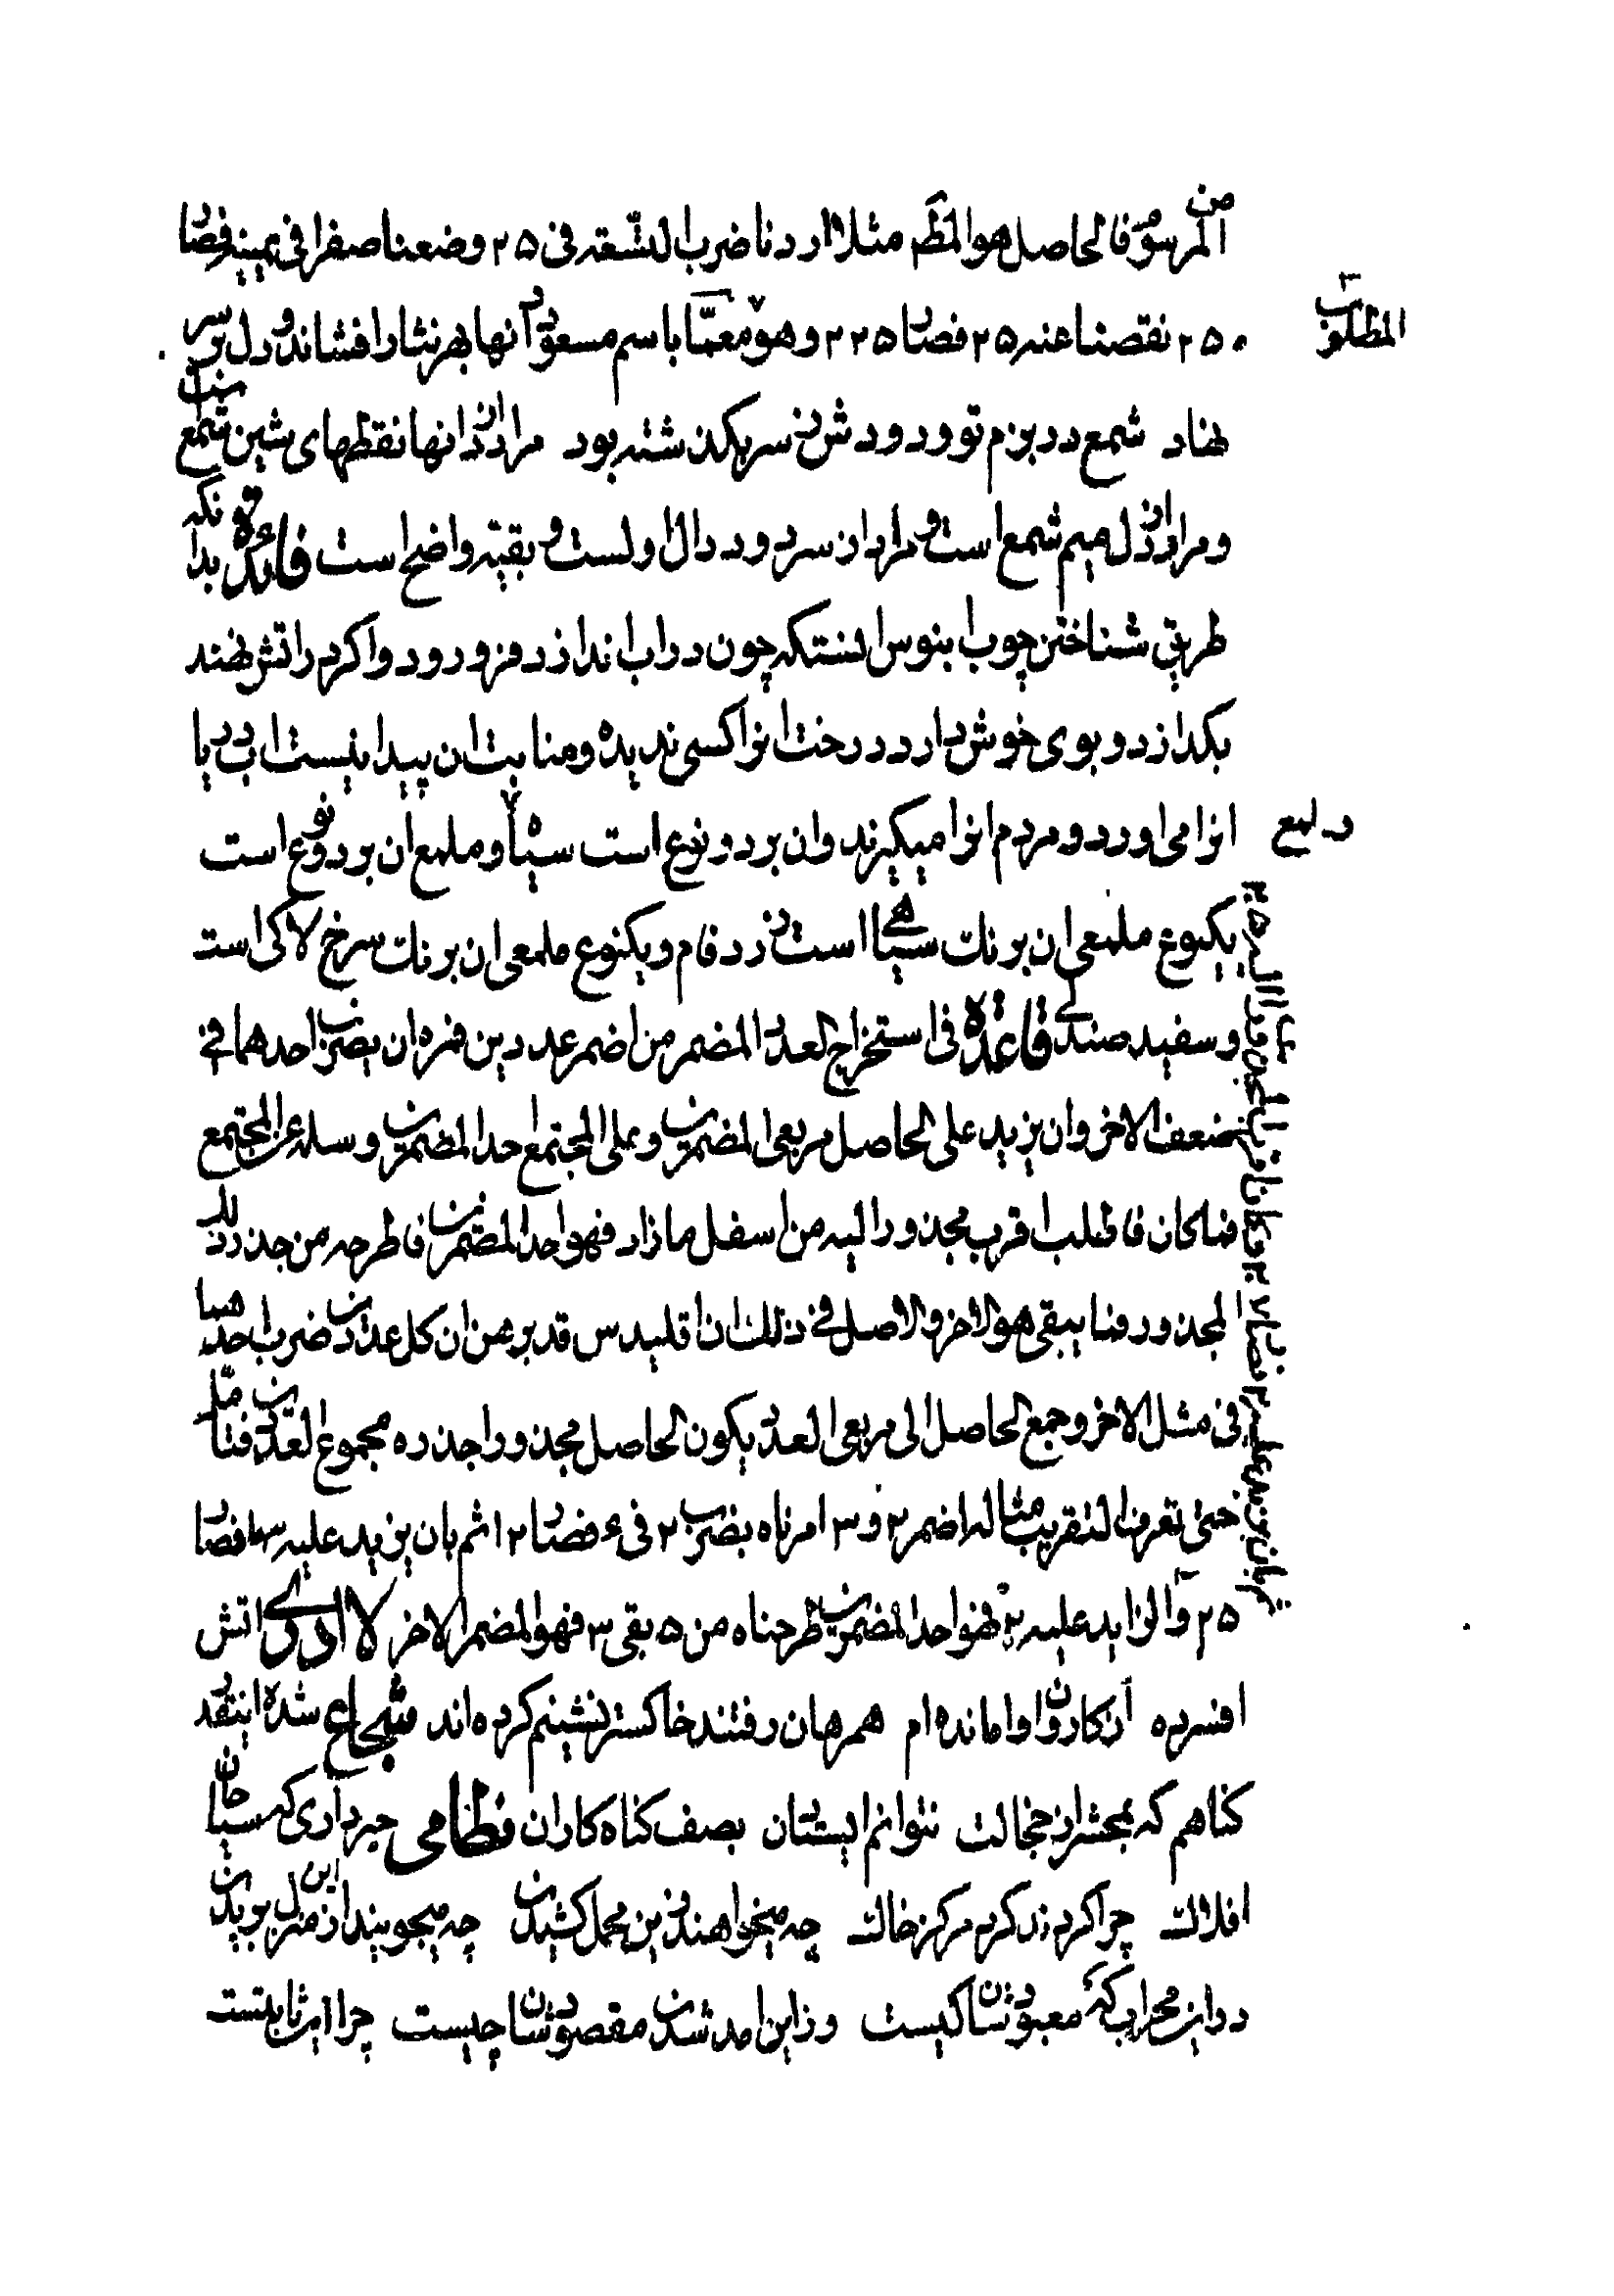 من المرسوم فالحاصل هو المط مثلا اردنا ضرب التسعة فی ۲۵ وضعنا صفرا فی یمینه فصار
۲۵۰ نقصنا عنه ۲۵ فصار ۲۲۵ وهو معمّا باسم مسعود دانها بهر نثار افشاند و دل بر سر
المطلوب
نهاد شمع در بزم تو و دودش ز سر بگذشته بود مراد از دانها نقطهای شین شمع است
و مراد از دل میم شمع است و مراد از سر دود دال اولست و بقیه واضح است فائدة بدانکه
طریق شناختن چوب ابنوس انستکه چون در اب اندازد فرو رود و اگر در اتش نهند
بکدازد و بوی خوش دارد درخت انرا کسی ندیده و منابت ان پیدا نیست اب دریا
انرا می اورد و مردم انرا میکیرند و ان بر دو نوع است سیاه و ملمع ان بر دو نوع است
و ملمع
یکنوع ملمعی ان برنك سیاهی است زرد فام و یکنوع ملمعی ان برنك سرخ لاکی است
و سفید صندلی قاعدة فی استخراج العدد المضمر من اضمر عددین فمره ان یضرب احدهما فی
ضعف الاخر وان یزید علی الحاصل مربعی المضمرین وعلی المجتمع احد المضمرین وسله عن المجتمع
فما كان فاطلب اقرب مجذور الیه من اسفل ما زاد فهو احد المضمرین فاطرحه من جذر ذلك
المجذور فما یبقی هو الاخر والاصل فی ذلك ان اقلیدس قد برهن ان كل عددین ضرب احدهما
فی مثل الاخر وجمع الحاصل الی مربعی العدد یكون الحاصل مجذورا جذره مجموع العددین فتامّل
حتی تعرف التقریب مثاله اضمر ۲ و ۳ امرناه بضرب ۲ فی ۶ فصار ۱۲ ثم بان یزید علیه ۱۳ فصار
۲۵ والزاید علیه ۲ فهو احد المضمرین طرحناه من ۵ بقی ۳ فهو المضمر الاخر لا ادری اتش
افسرده از کاروان وامانده ام همرهان رفتند خاکستر نشینم کرده اند شجاع شده اینقدر
کناهم که بمحشر از خجالت نتوانم ایستادن بصف کناه کاران نظامی خبر داری که سیاحان
افلاك چرا کردند کرد مرکز خاك چه میخواهند ازین محمل کشیدن چه میجویند ازین منزل بریدن
در این محراب که معبودشان کیست وز این امد شدن مقصودشان چیست چرا این ثابتست